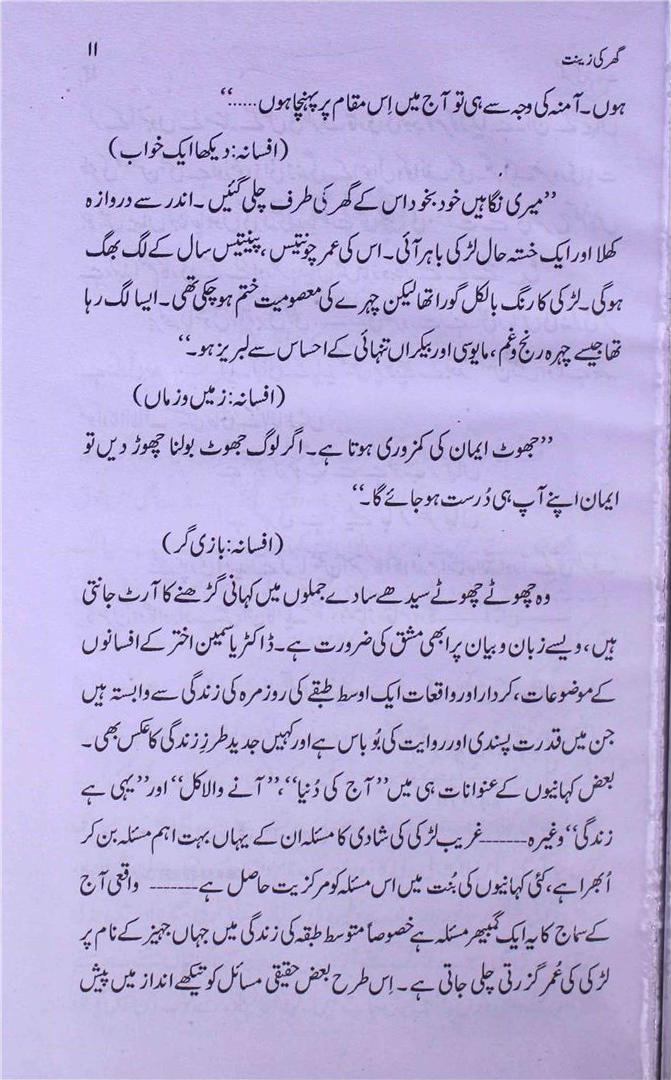 گھر کی زینت ۱۱
ہوں۔ آمنہ کی وجہ سے ہی تو آج میں اِس مقام پر پہنچا ہوں.....‘‘
(افسانہ: دیکھا ایک خواب)
’’میری نگاہیں خود بخود اس کے گھر کی طرف چلی گئیں۔ اندر سے دروازہ
کھلا اور ایک خستہ حال لڑکی باہر آئی۔ اس کی عمر چونتیس، پینتیس سال کے لگ بھگ
ہوگی۔ لڑکی کا رنگ بالکل گورا تھا لیکن چہرے کی معصومیت ختم ہو چکی تھی۔ ایسا لگ رہا
تھا جیسے چہرہ رنج و غم، مایوسی اور بیکراں تنہائی کے احساس سے لبریز ہو۔‘‘
(افسانہ: زمیں و زماں)
’’جھوٹ ایمان کی کمزوری ہوتا ہے۔ اگر لوگ جھوٹ بولنا چھوڑ دیں تو
ایمان اپنے آپ ہی دُرست ہو جائے گا۔‘‘
(افسانہ: بازی گر)
وہ چھوٹے چھوٹے سیدھے سادے جملوں میں کہانی گڑھنے کا آرٹ جانتی
ہیں، ویسے زبان و بیان پر ابھی مشق کی ضرورت ہے۔ ڈاکٹر یاسمین اختر کے افسانوں
کے موضوعات، کردار اور واقعات ایک اوسط طبقے کی روزمرہ کی زندگی سے وابستہ ہیں
جن میں قدرت پسندی اور روایت کی بُو باس ہے اور کہیں جدید طرزِ زندگی کا عکس بھی۔
بعض کہانیوں کے عنوانات ہی میں ’’آج کی دُنیا‘‘، ’’آنے والا کل‘‘ اور ’’یہی ہے
زندگی‘‘ وغیرہ ------ غریب لڑکی کی شادی کا مسئلہ ان کے یہاں بہت اہم مسئلہ بن کر
اُبھرا ہے، کئی کہانیوں کی بُنت میں اس مسئلہ کو مرکزیت حاصل ہے ------ واقعی آج
کے سماج کا یہ ایک گمبھیر مسئلہ ہے خصوصاً متوسط طبقہ کی زندگی میں جہاں جہیز کے نام پر
لڑکی کی عُمر گزرتی چلی جاتی ہے۔ اِس طرح بعض حقیقی مسائل کو تیکھے انداز میں پیش